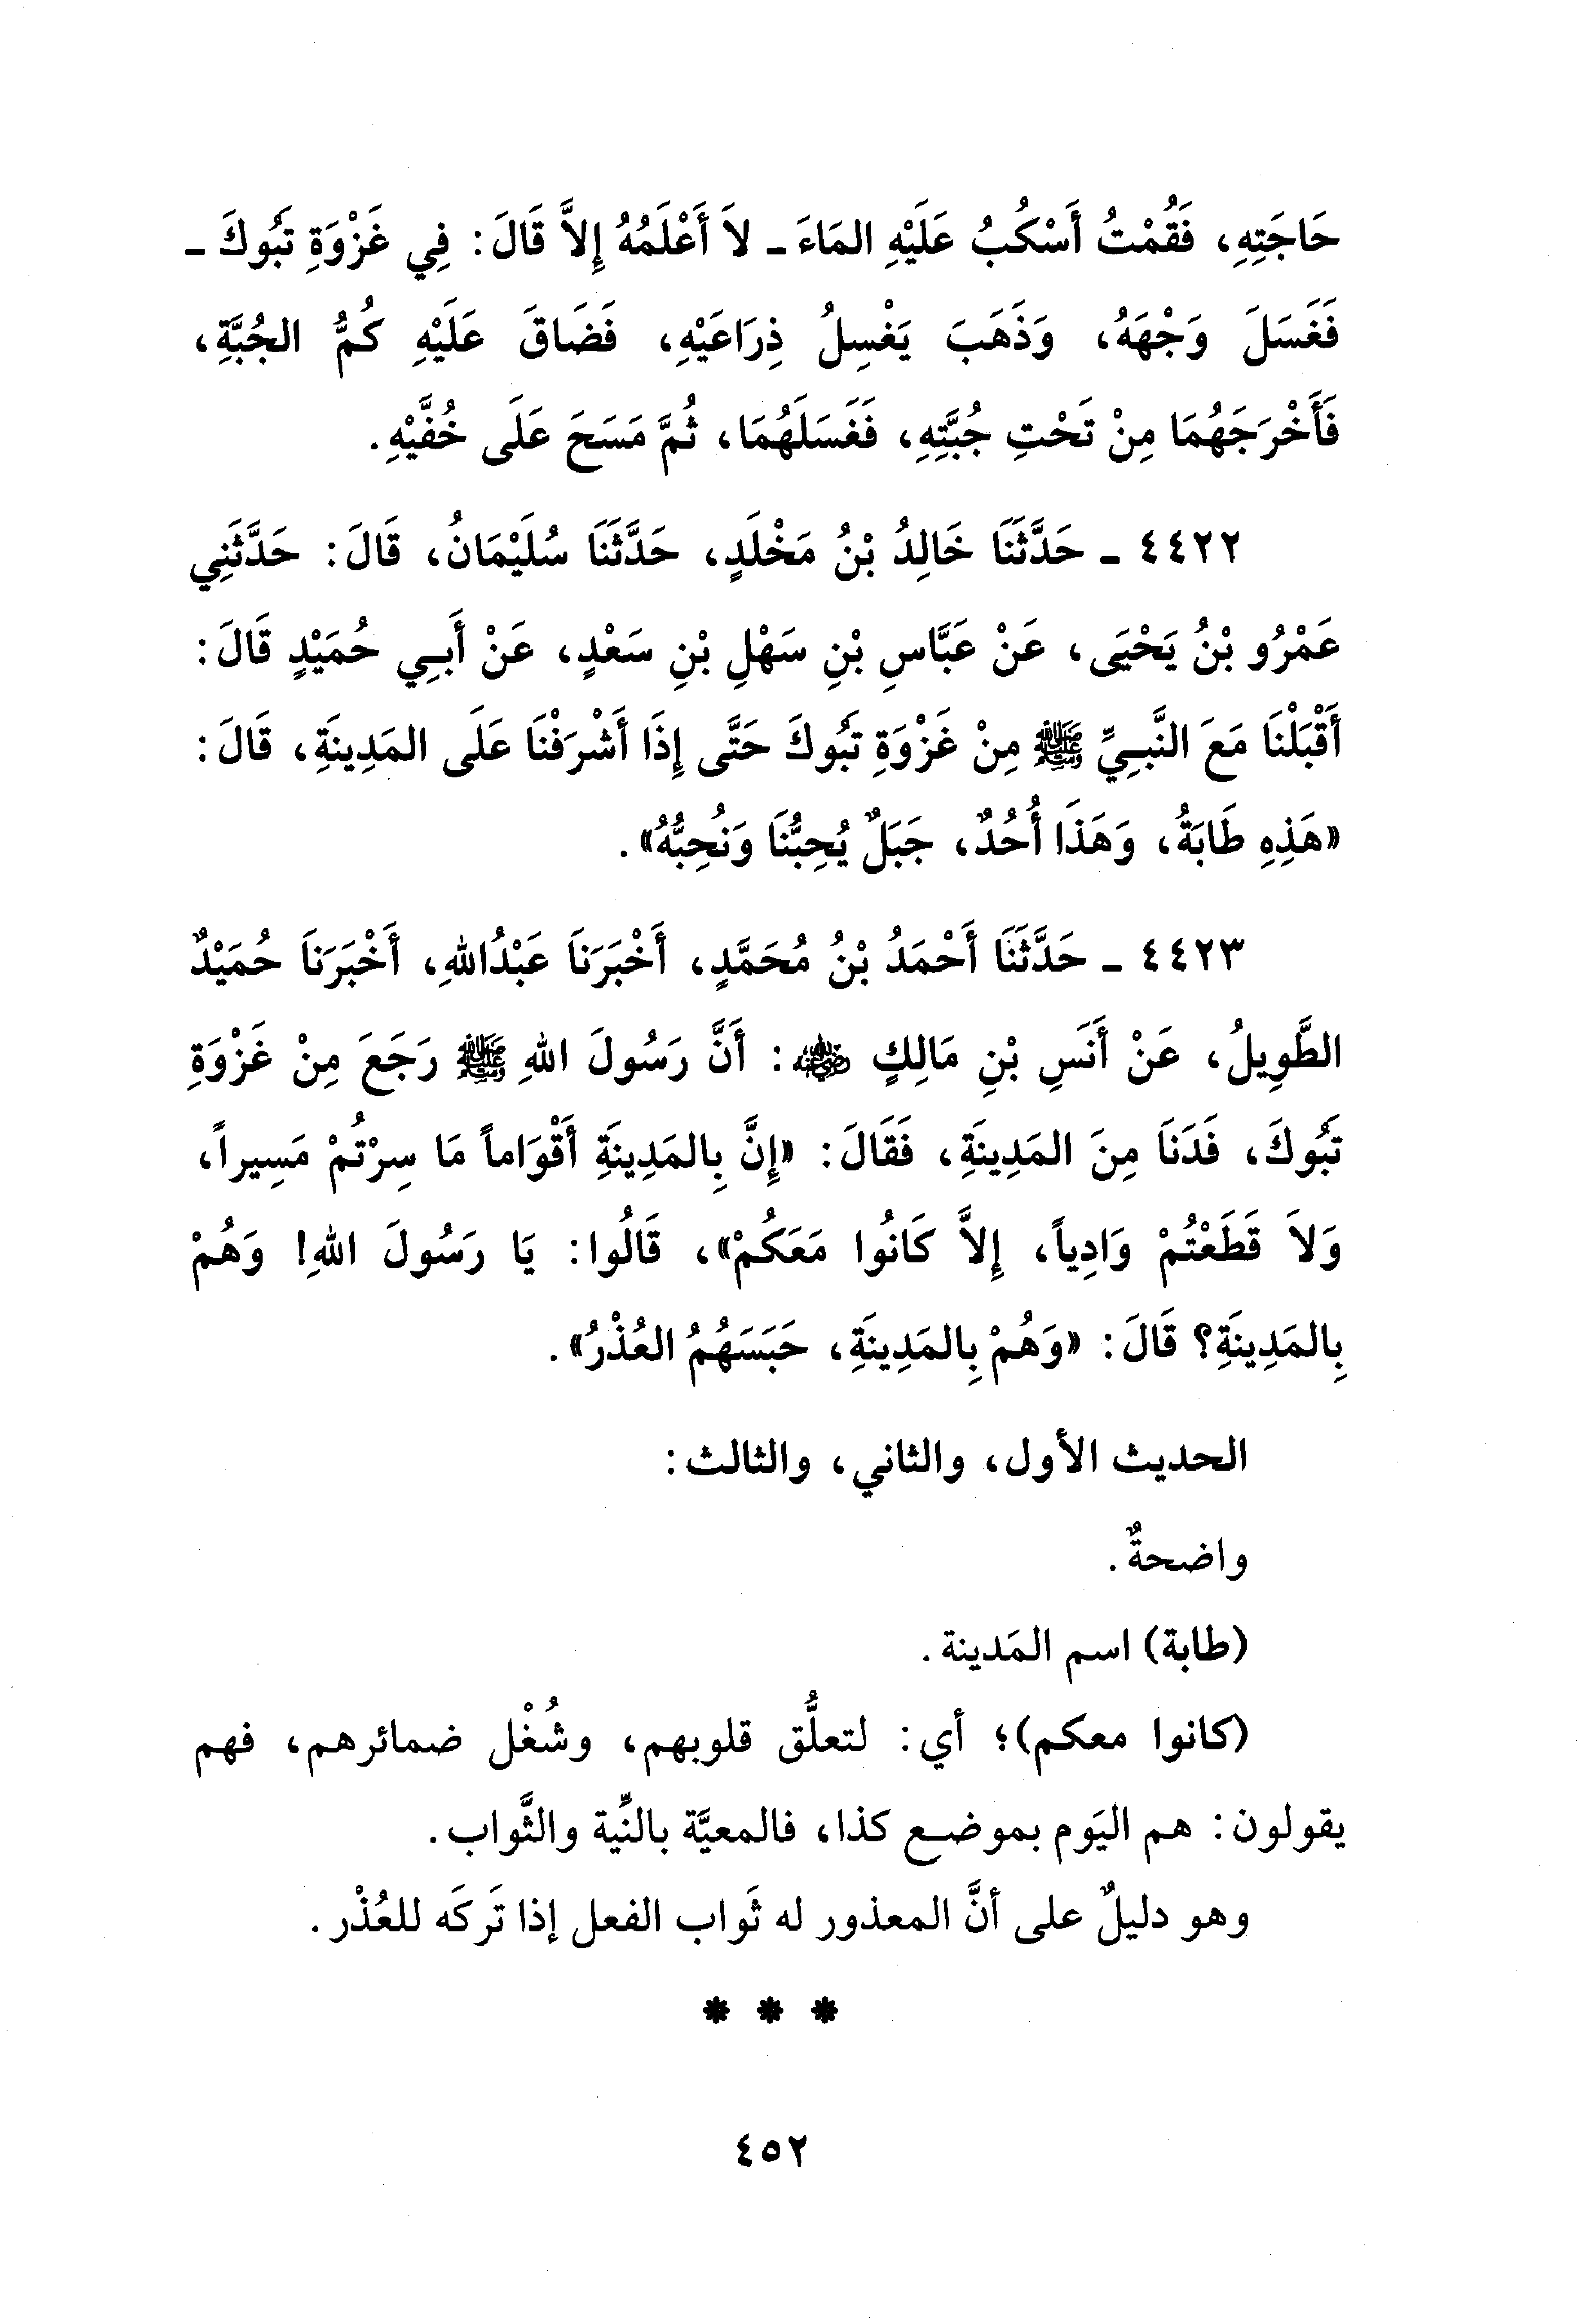 حَاجَتِهِ، فَقُمْتُ أَسْكُبُ عَلَيْهِ المَاءَ - لاَ أَعْلَمُهُ إِلاَّ قَالَ: فِي غَزْوَةِ تَبُوكَ -
فَغَسَلَ وَجْهَهُ، وَذَهَبَ يَغْسِلُ ذِرَاعَيْهِ، فَضَاقَ عَلَيْهِ كُمُّ الجُبَّةِ،
فَأَخْرَجَهُمَا مِنْ تَحْتِ جُبَّتِهِ، فَغَسَلَهُمَا، ثُمَّ مَسَحَ عَلَى خُفَّيْهِ.
٤٤٢٢ - حَدَّثَنَا خَالِدُ بْنُ مَخْلَدٍ، حَدَّثَنَا سُلَيْمَانُ، قَالَ: حَدَّثَنِي
عَمْرُو بْنُ يَحْيَى، عَنْ عَبَّاسِ بْنِ سَهْلِ بْنِ سَعْدٍ، عَنْ أَبِي حُمَيْدٍ قَالَ:
أَقْبَلْنَا مَعَ النَّبِيِّ ﷺ مِنْ غَزْوَةِ تَبُوكَ حَتَّى إِذَا أَشْرَفْنَا عَلَى المَدِينَةِ، قَالَ:
«هَذِهِ طَابَةُ، وَهَذَا أُحُدٌ، جَبَلٌ يُحِبُّنَا وَنُحِبُّهُ».
٤٤٢٣ - حَدَّثَنَا أَحْمَدُ بْنُ مُحَمَّدٍ، أَخْبَرَناَ عَبْدُاللهِ، أَخْبَرَناَ حُمَيْدٌ
الطَّوِيلُ، عَنْ أَنَسِ بْنِ مَالِكٍ رضي الله عنه: أَنَّ رَسُولَ اللهِ ﷺ رَجَعَ مِنْ غَزْوَةِ
تَبُوكَ، فَدَناَ مِنَ المَدِينَةِ، فَقَالَ: «إِنَّ بِالمَدِينَةِ أَقْوَاماً مَا سِرْتُمْ مَسِيراً،
وَلاَ قَطَعْتُمْ وَادِياً، إِلاَّ كَانُوا مَعَكُمْ»، قَالُوا: يَا رَسُولَ اللهِ! وَهُمْ
بِالمَدِينَةِ؟ قَالَ: «وَهُمْ بِالمَدِينَةِ، حَبَسَهُمُ العُذْرُ».
الحديث الأول، والثاني، والثالث:
واضحةٌ.
(طابة) اسم المَدينة.
(كانوا معكم)؛ أي: لتعلُّق قلوبهم، وشُغْل ضمائرهم، فهم
يقولون: هم اليَوم بموضع كذا، فالمعيَّة بالنِّية والثَّواب.
وهو دليلٌ على أنَّ المعذور له ثَواب الفعل إذا تَركَه للعُذْر.
* * *
٤٥٢